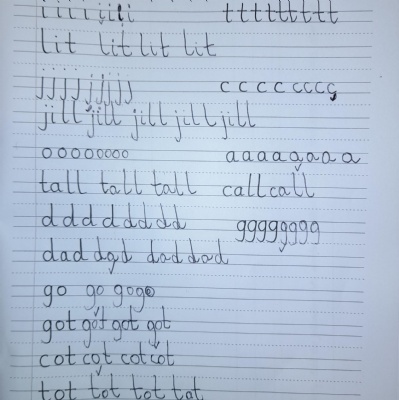 iiii iiii ttttttttt
lit lit lit lit
jjjjjjjjj cccccccc
jill jill jill jill jill
oooooooo aaaaaaaa
tall tall tall call call
dddddddd gggggggg
dad dad dad dad
go go gogo
got got got got
cot cot cot cot
tot tot tot tot